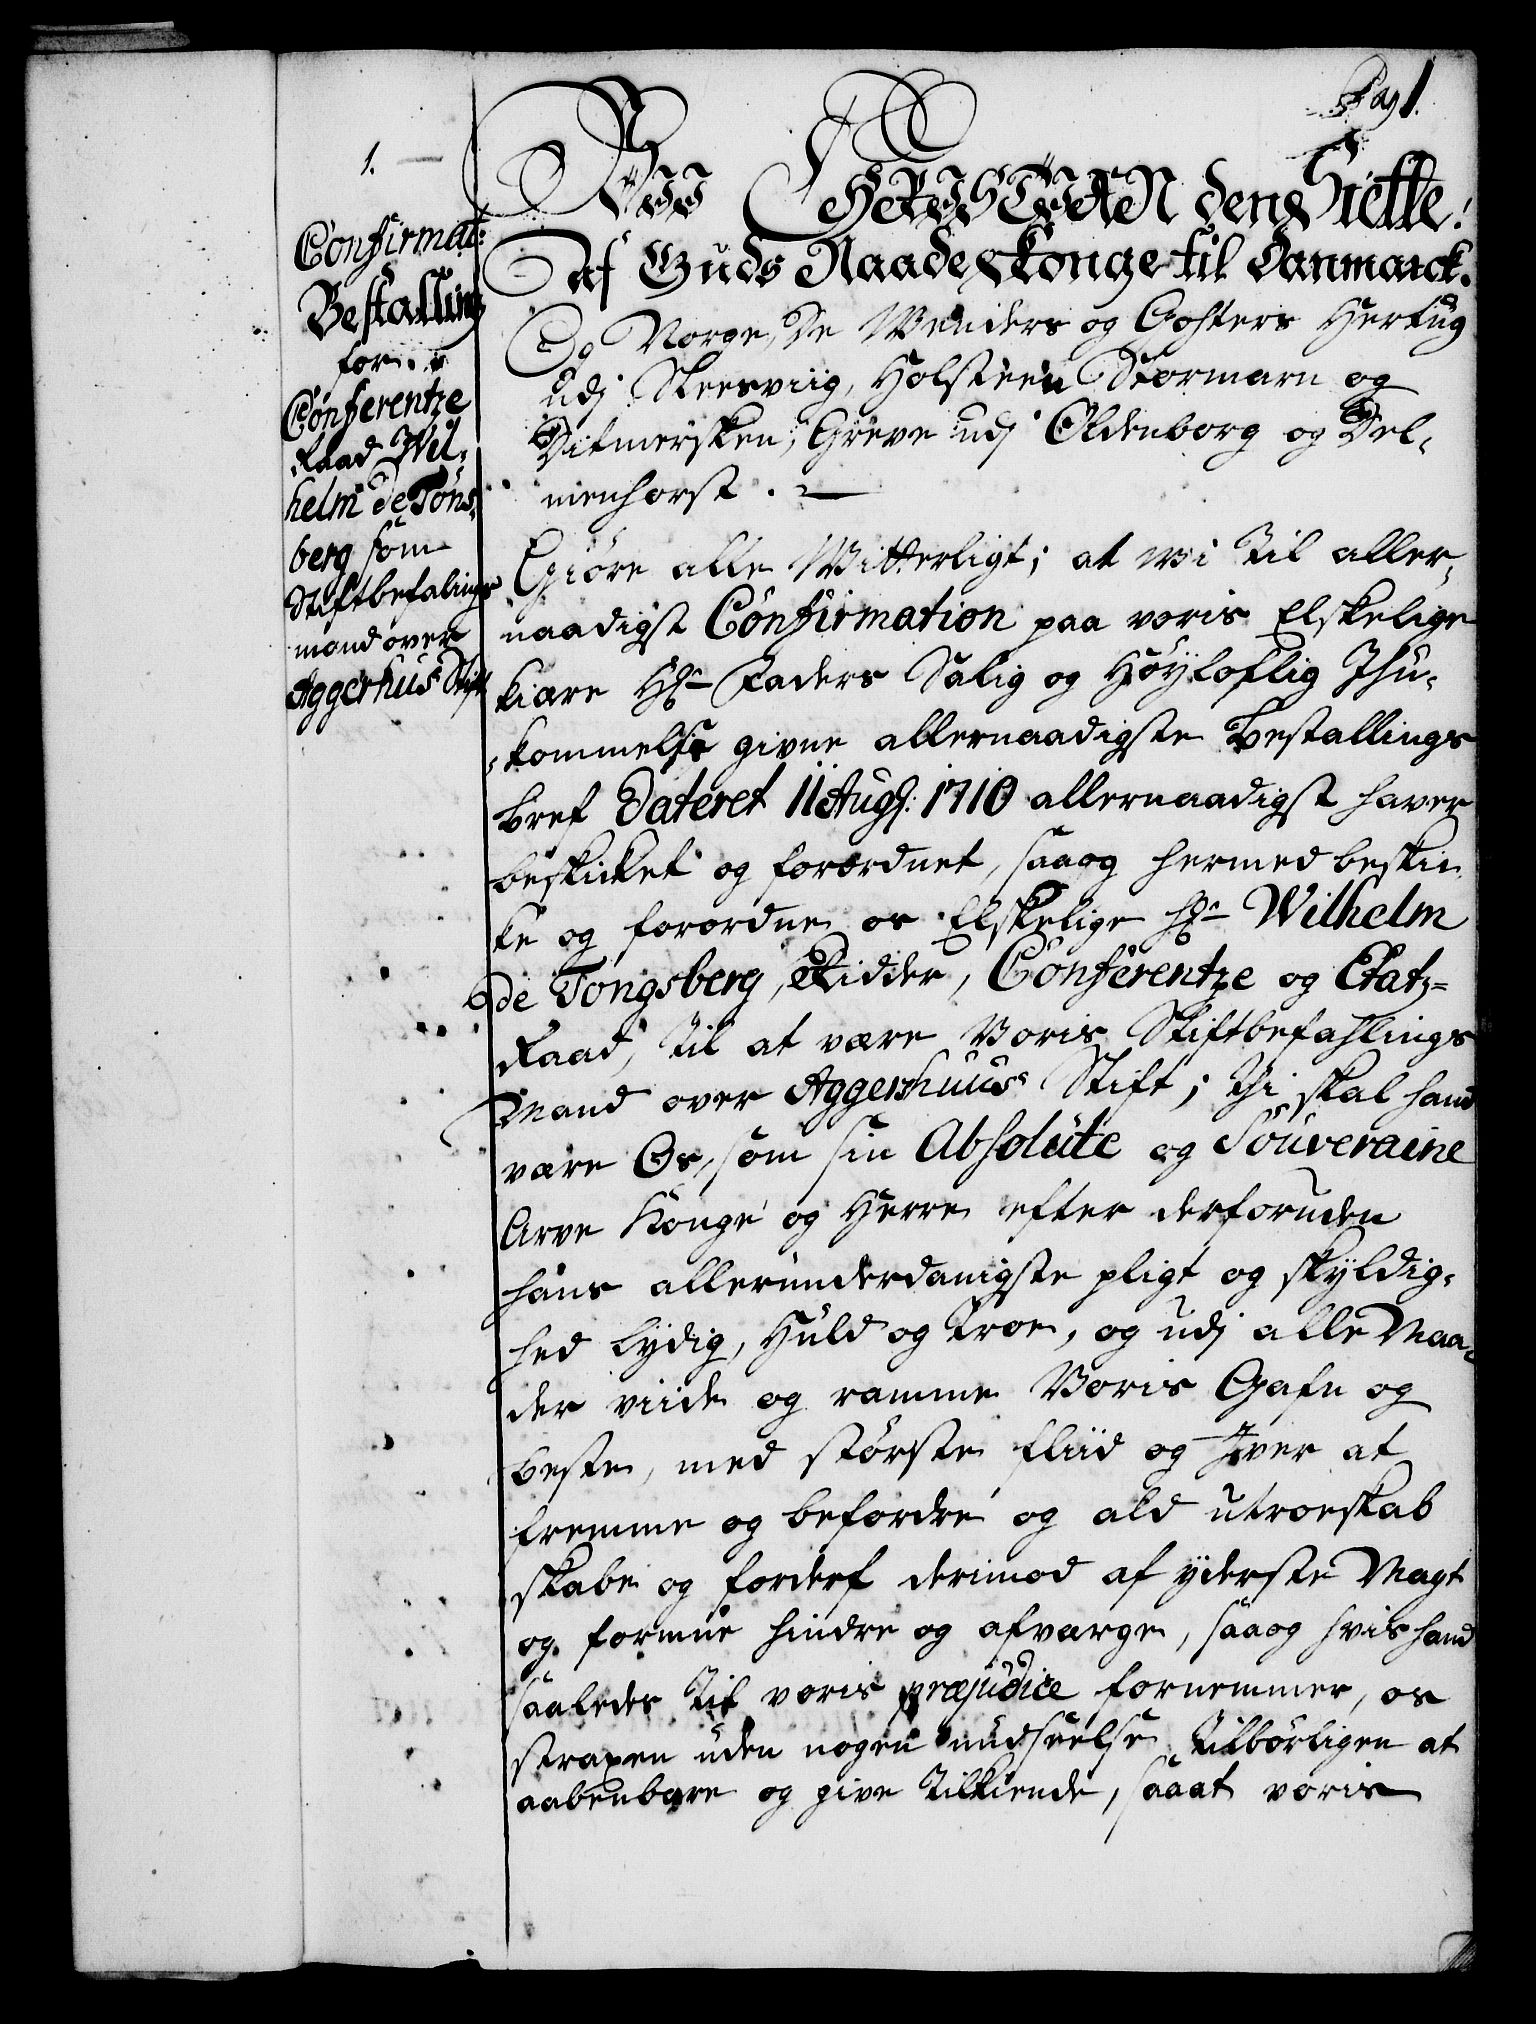 Pag 1.
1.
Confirmat:
Bestalling
for
Conferentze
Raad Wil-
helm de Tons-
berg som
Stiftbefalings
mand over
Aggerhus Stift
Wii CHRISTIAN den Siette!
Af Guds Naade Konge til Danmarck.
Og Norge, De Wenders og Gothers Hertug
udj Sleesviig, Holsteen Stormarn og
Ditmersken, Greve udj Oldenborg og Del-
menhorst.
Giøre alle Witterligt; at wi til aller-
naadigst Confirmation paa voris Elskelige
kiære Hr Faders Salig og Høyloflig Ihu-
kommelse givne allernaadigste Bestallings
Bref Dateret 11 Aug: 1710 allernaadigst haver
beskicket og forordnet, saaog hermed beskic-
ke og forordne os Elskelige Hr Wilhelm
de Tongsberg, Ridder, Conferentze og Etatz-
Raad, til at være Voris Stiftbefahlings
Mand over Aggershuus Stift; thi skal hand
være Os, som sin Absolute og Souveraine
Arve Konge og Herre efter derforuden
hans allerunderdanigste pligt og skyldig-
hed lydig, Huld og troe, og udj alle Maa-
der viide og ramme Voris Gafn og
beste, med største fliid og Iver at
fremme og befordre og ald utroeskab
skade og forderf derimod af yderste Magt
og formue hindre og afværge, saaog hvis hand
saaledes til voris præjudice fornemmer, os
straxen uden nogen undseelse tilbørligen at
aabenbare og give tilkiende, saaat voris